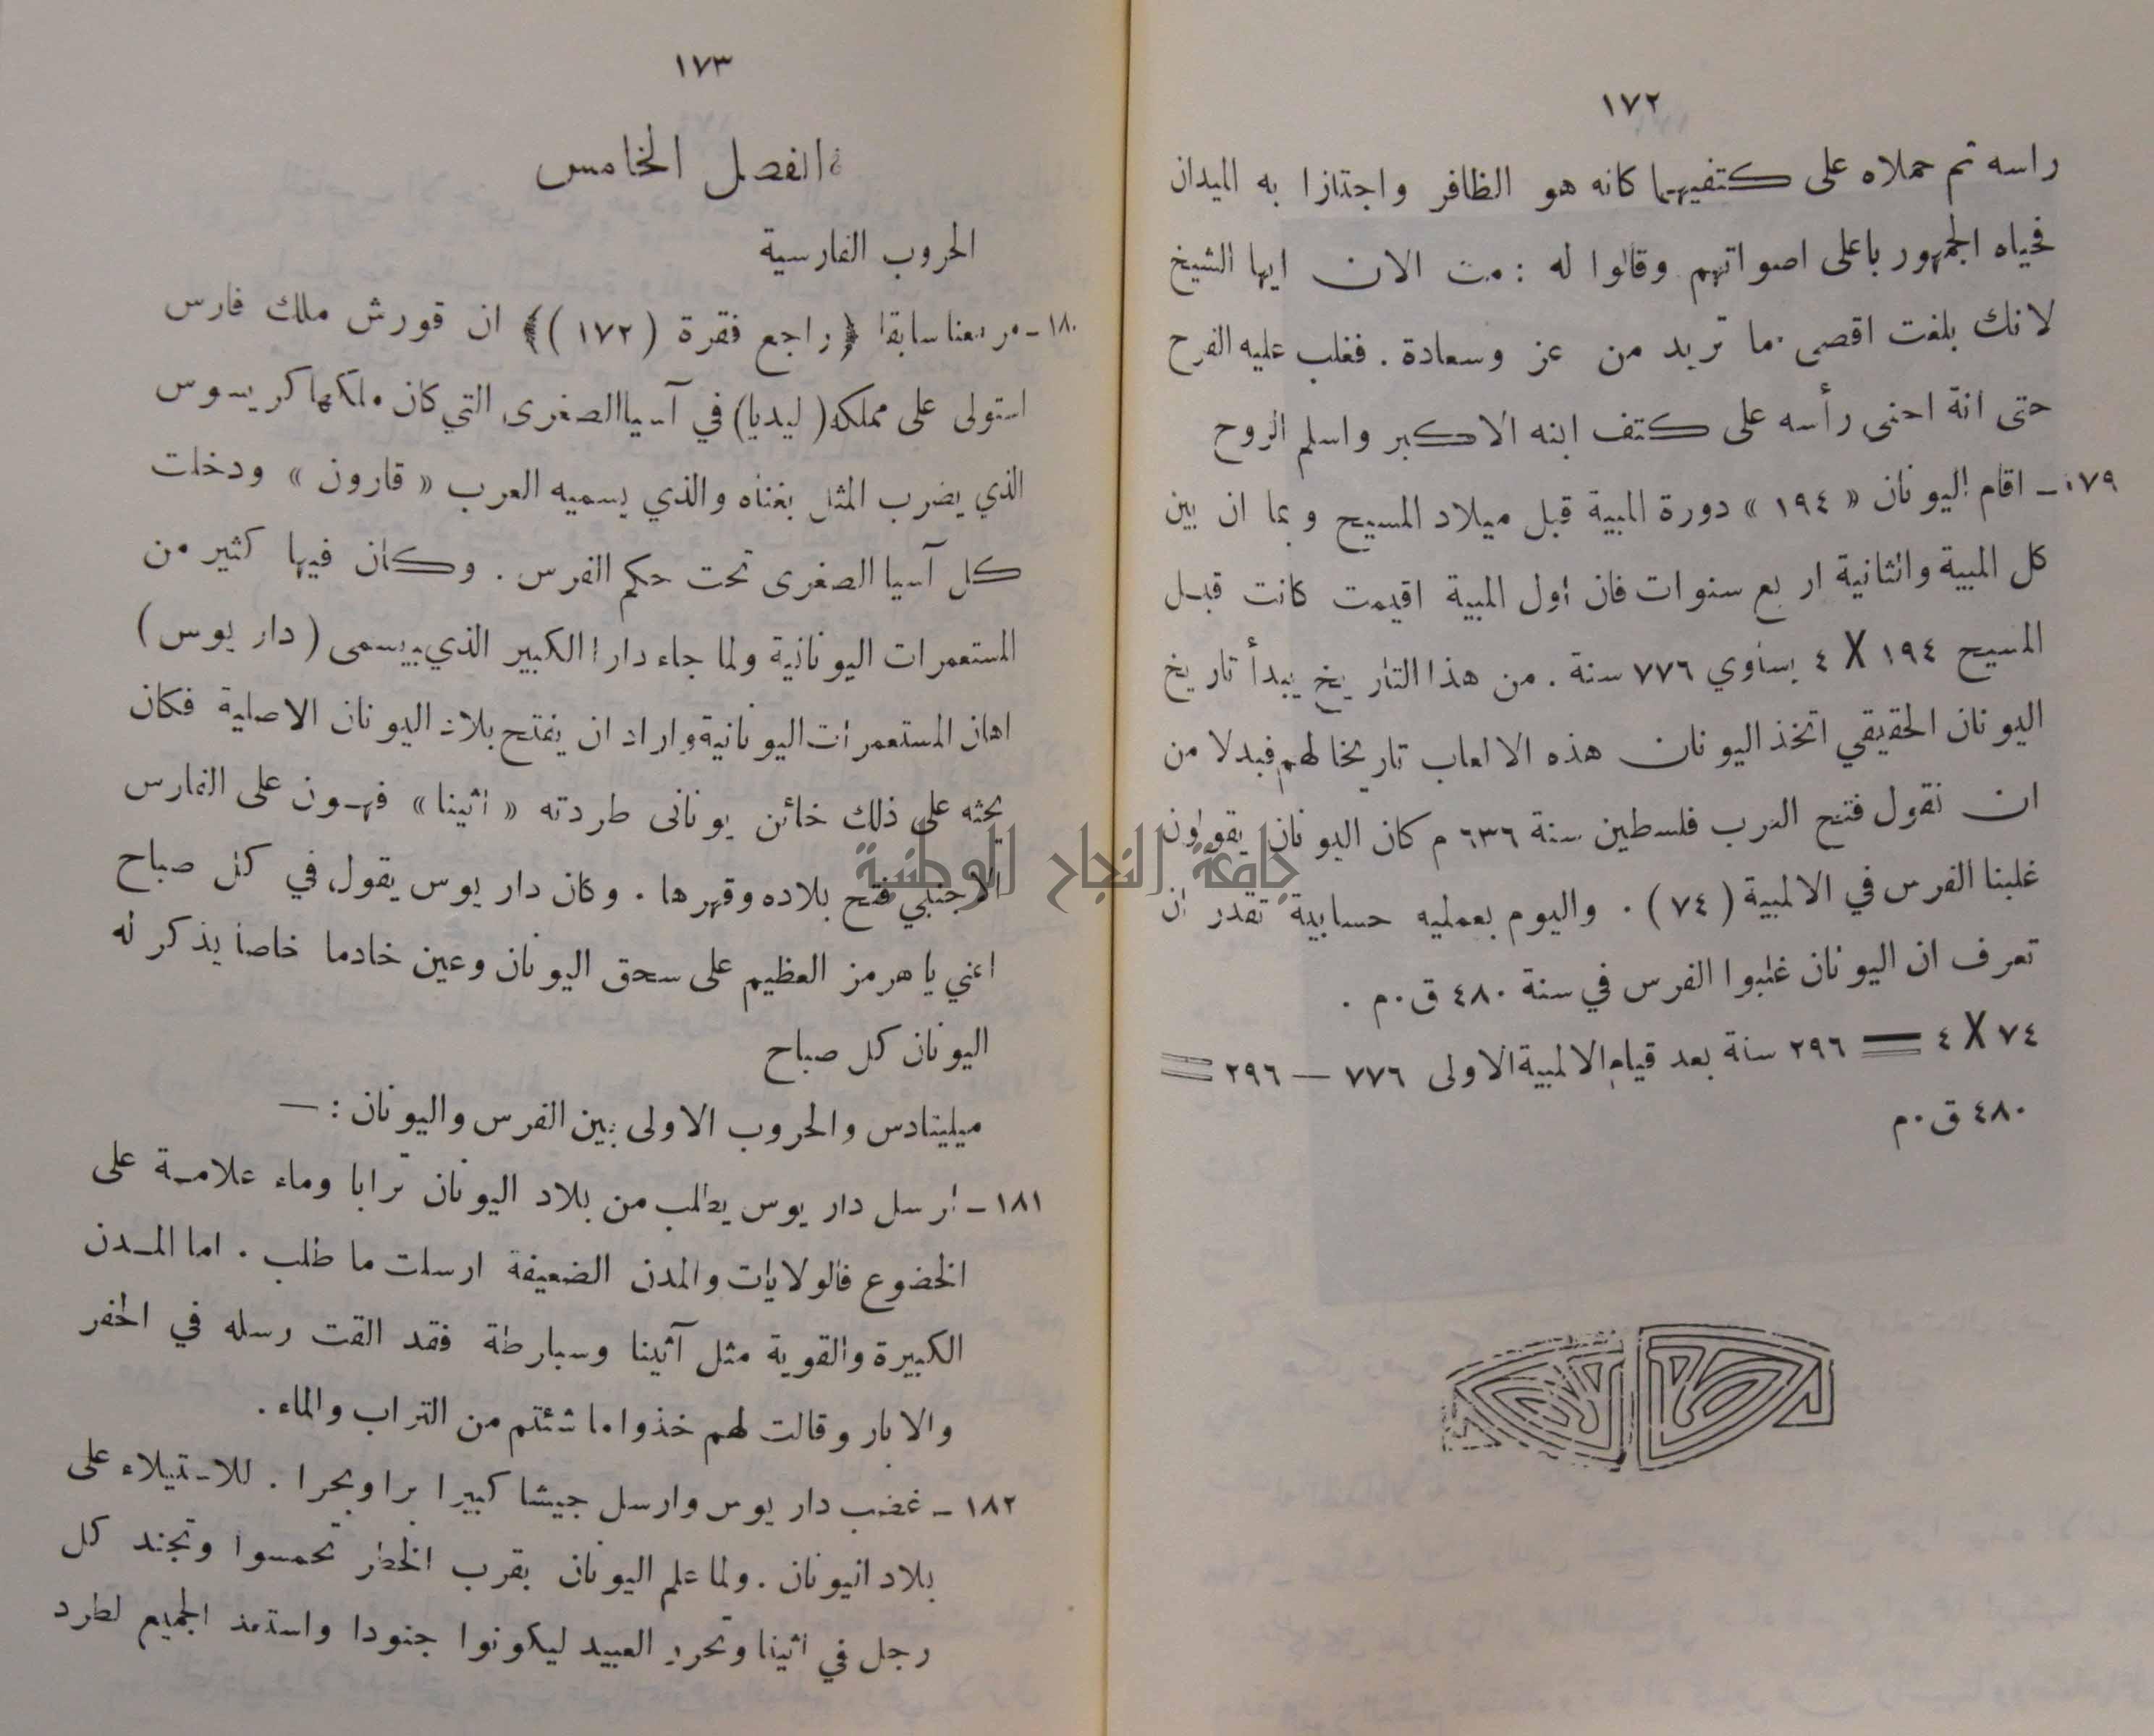 ١٧٢
راسه ثم حملاه على كتفيهما كانه هو الظافر واجتازا به الميدان
فحياه الجمهور باعلى اصواتهم وقالوا له : مت الان ايها الشيخ
لانك بلغت اقصى ما تريد من عز وسعادة . فغلب عليه الفرح
حتى انه احنى رأسه على كتف ابنه الاكبر واسلم الروح
١٧٩ ـ اقام اليونان « ١٩٤ » دورة المبية قبل ميلاد المسيح وبما ان بين
كل المبية والثانية اربع سنوات فان أول المبية اقيمت كانت قبل
المسيح ١٩٤ X ٤ يساوي ٧٧٦ سنة . من هذا التاريخ يبدأ تاريخ
اليونان الحقيقي اتخذ اليونان هذه الالعاب تاريخا لهم فبدلا من
ان نقول فتح العرب فلسطين سنة ٦٣٦ م كان اليونان يقولون
غلبنا الفرس في الالمبية ( ٧٤ ) . واليوم بعمليه حسابية تقدر ان
تعرف ان اليونان غلبوا الفرس في سنة ٤٨٠ ق.م .
٧٤ X ٤ = ٢٩٦ سنة بعد قيام الالمبية الاولى ٧٧٦ — ٢٩٦ =
٤٨٠ ق.م
١٧٣
الفصل الخامس
الحروب الفارسية
١٨٠ ـ مر معنا سابقا ﴿ راجع فقرة ( ١٧٢ ) ﴾ ان قورش ملك فارس
استولى على مملكة ( ليديا ) في آسيا الصغرى التي كان ملكها كريسوس
الذي يضرب المثل بغناه والذي يسميه العرب « قارون » ودخلت
كل آسيا الصغرى تحت حكم الفرس . وكان فيها كثير من
المستعمرات اليونانية ولما جاء دارا الكبير الذي يسمى ( داريوس )
اهان المستعمرات اليونانية واراد ان يفتح بلاد اليونان الاصلية فكان
يحثه على ذلك خائن يونانى طردته « اثينا » فهون على الفارس
الاجنبي فتح بلاده وقهرها . وكان داريوس يقول في كل صباح
اعني يا هرمز العظيم على سحق اليونان وعين خادما خاصا يذكر له
اليونان كل صباح
ميليتادس والحروب الاولى بين الفرس واليونان : —
١٨١ ـ ارسل داريوس يطلب من بلاد اليونان ترابا وماء علامة على
الخضوع فالولايات والمدن الضعيفة ارسلت ما طلب . اما المدن
الكبيرة والقوية مثل آثينا وسبارطة فقد القت رسله في الحفر
والابار وقالت لهم خذوا ما شئتم من التراب والماء .
١٨٢ ـ غضب داريوس وارسل جيشا كبيرا برا وبحرا . للاستيلاء على
بلاد اليونان . ولما علم اليونان بقرب الخطر تحمسوا وتجند كل
رجل في اثينا وتحرر العبيد ليكونوا جنودا واستعد الجميع لطرد
جامعة النجاح الوطنية